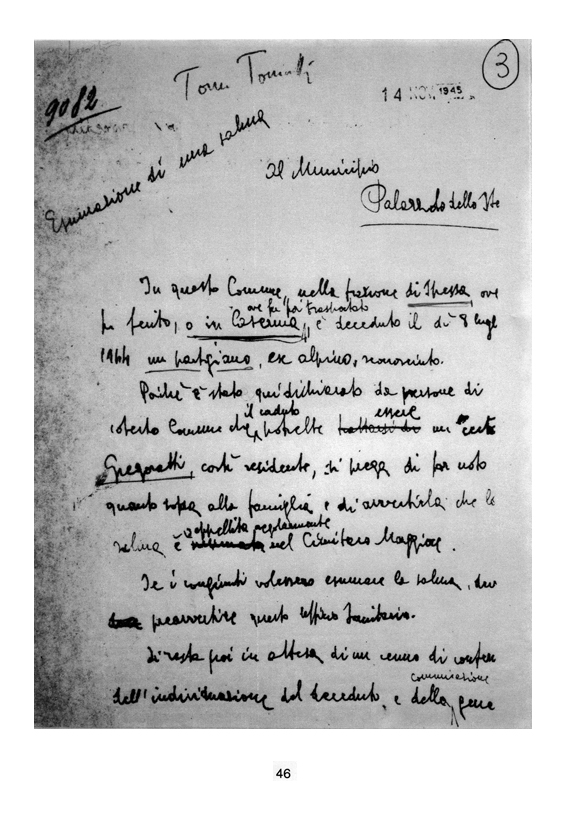 3
9082
14 NOV. 1945
Esumazione di una salma
Al Municipio
Palazzolo dello
In questo Comune, nella frazione di Spessa, ove
ove fu poi trasportato
fu ferito, o in Caserma, è deceduto il dì 8 lugl
1944 un partigiano, ex alpino, sconosciuto.
Poichè è stato qui dichiarato da persone di
il caduto essere
cotesto Comune che potrebbe trattarsi di un certo
Gregoratti, costì residente, si prega di far noto
quanto sopra alla famiglia e di avvertirla che la
seppellita regolarmente
salma è nel Cimitero Maggiore.
Se i congiunti volessero esumare la salma, dev
preavvertire questo Ufficio Sanitario.
Si resta poi in attesa di un cenno di confer
comunicazione
dell'individuazione del deceduto, e della gene
46